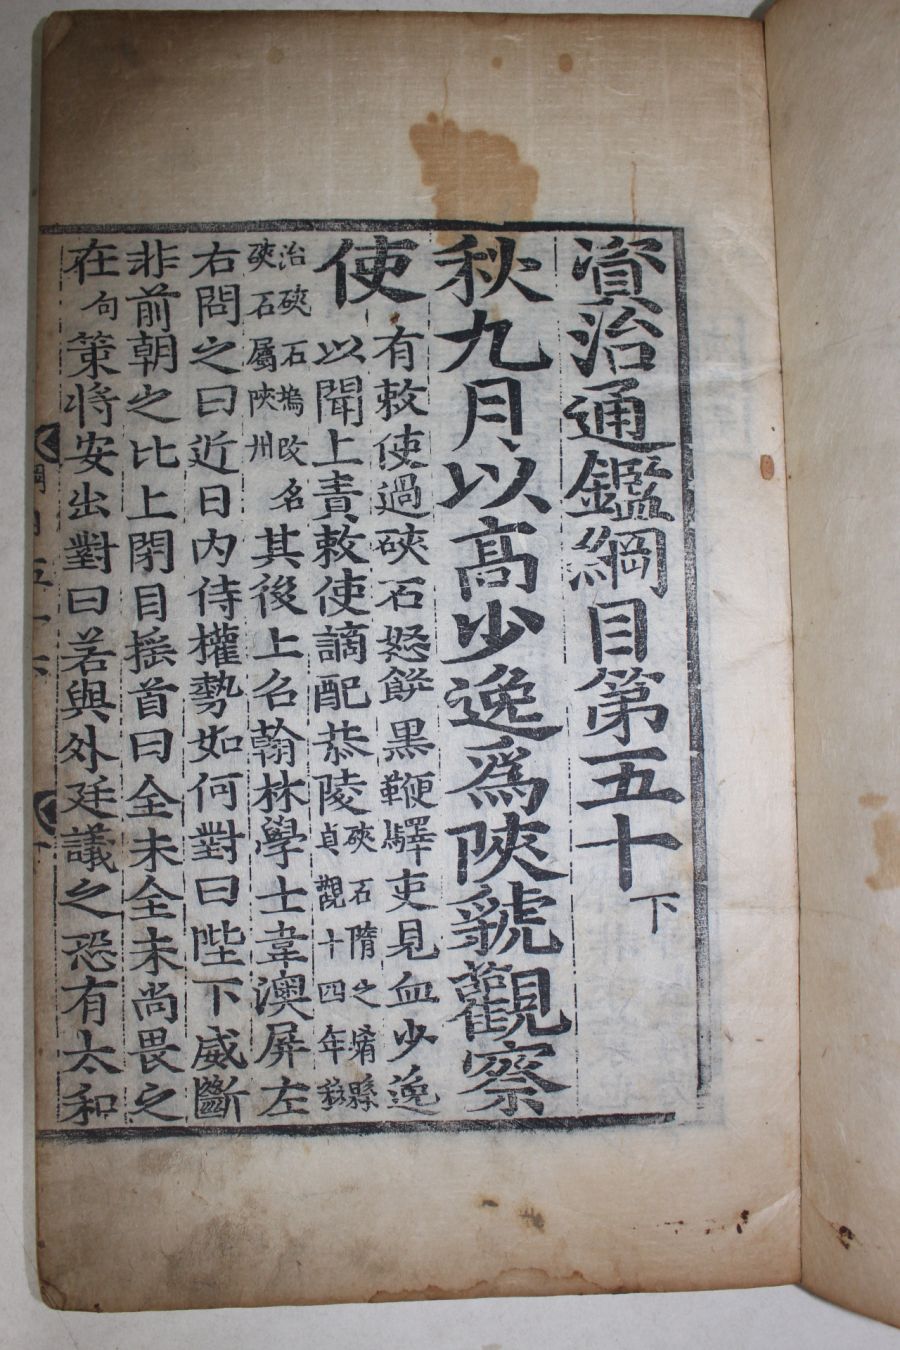 資治通鑑綱目第五十下
秋九月以高少逸爲陝虢觀察
使有敕使過硤石怒餅黑鞭驛吏見血少逸
以聞上責敕使謫配恭陵硤石隋之崤縣
貞觀十四年移
治硤石塢改名
硤石屬陝州
其後上召翰林學士韋澳屏左
右問之曰近日内侍權勢如何對曰陛下威斷
非前朝之比上閉目搖首曰全未全未尚畏之
在句策將安出對曰若與外廷議之恐有太和